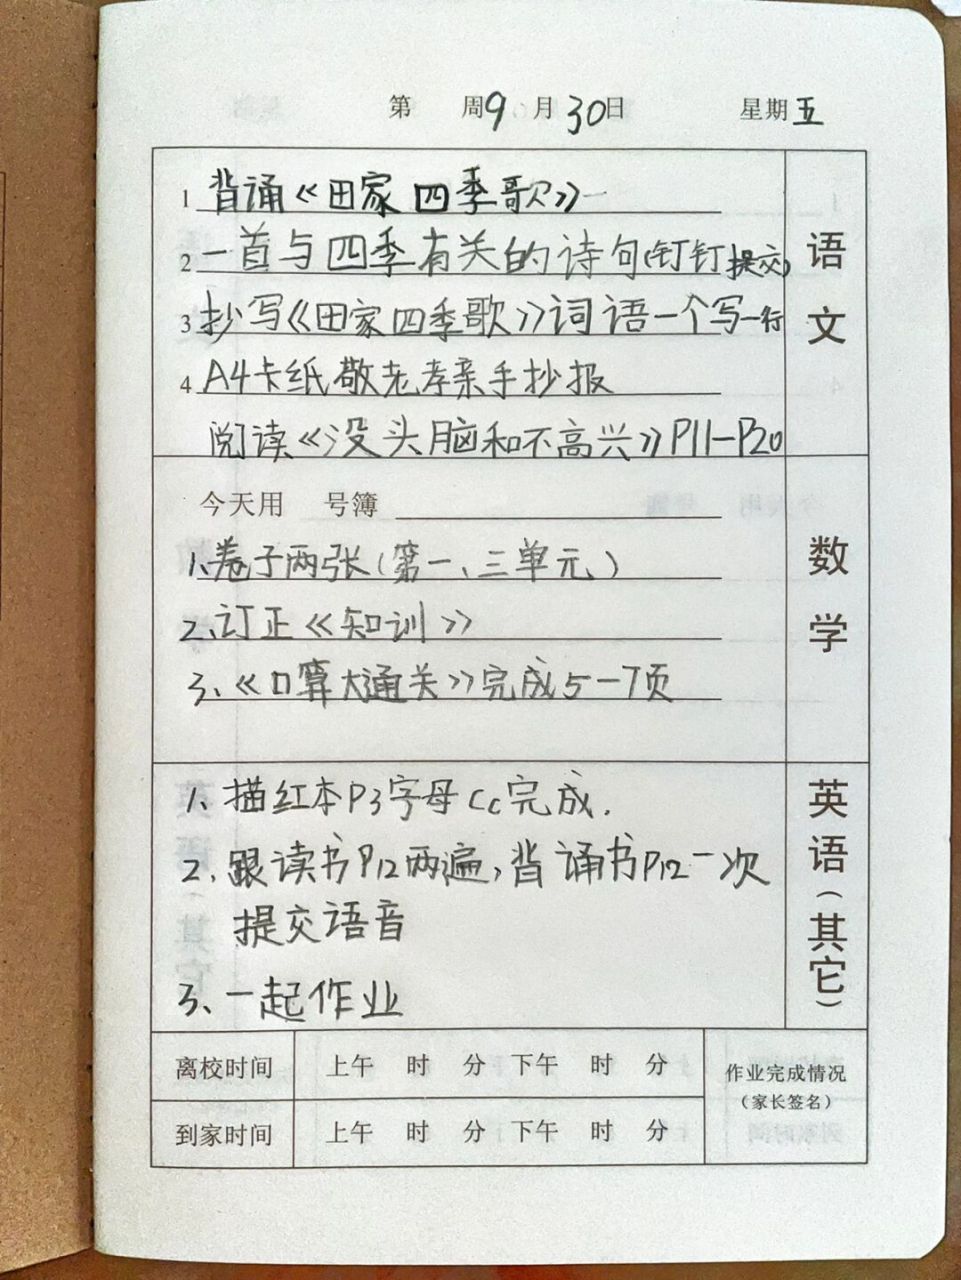 第 周 9 月 30 日 星期 五
1 背诵《田家四季歌》
2 一首与四季有关的诗句(钉钉提交)
3 抄写《田家四季歌》词语一个写一行
4 A4卡纸敬老孝亲手抄报
阅读《没头脑和不高兴》P11-P20
语文
今天用 号簿
1、卷子两张(第一、三单元)
2、订正《知训》
3、《口算大通关》完成5-7页
数学
1、描红本P3字母Cc完成.
2、跟读书P12两遍,背诵书P12一次
提交语音
3、一起作业
英语(其它)
离校时间 上午 时 分 下午 时 分
到家时间 上午 时 分 下午 时 分
作业完成情况
(家长签名)